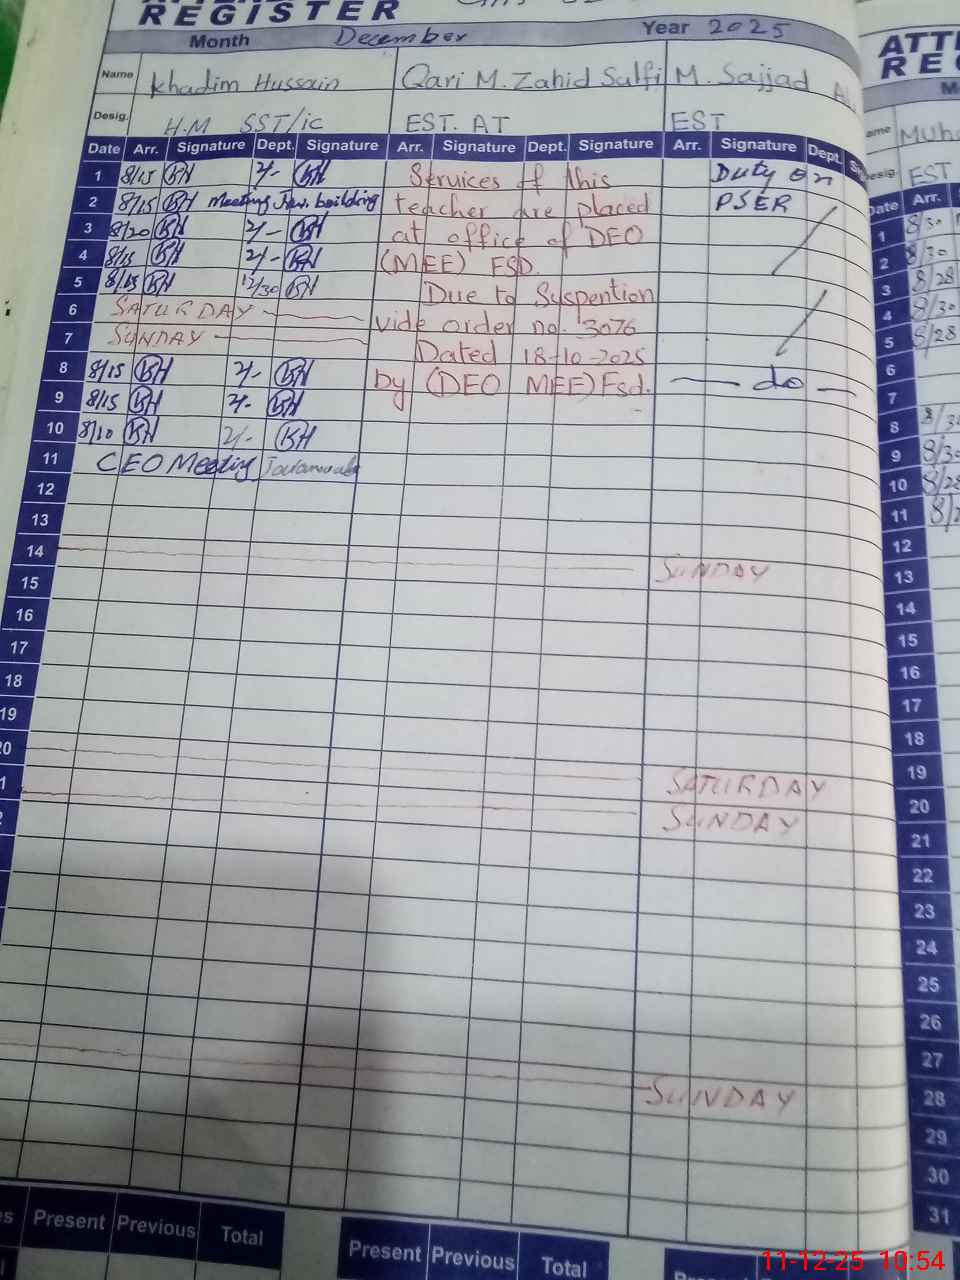 REGISTER
Month December Year 2025
Name Khadim Hussain Qari M. Zahid Sulfi M. Sajjad
Desig. H.M SST/ic EST. AT EST
Date Arr. Signature Dept. Signature Arr. Signature Dept. Signature Arr. Signature Dept.
1 8/15 KH 2/- KH Services of this Duty on
2 8/15 KH Meeting building teacher are placed PSER
3 8/20 KH 2/- KH at office of DEO
4 8/15 KH 2/- KH (MEE) FSD.
5 8/15 KH 12/30 KH Due to Suspention
6 SATURDAY vide order no. 3076
7 SUNDAY Dated 18-10-2025
8 8/15 KH 2/- KH by (DEO MEE) Fsd. — do —
9 8/15 KH 2/- KH
10 8/10 KH 2/- KH
11 CEO Meeting
12
13
14 SUNDAY
15
16
17
18
19
20 SATURDAY
SUNDAY
SUNDAY
Present Previous Total
Present Previous Total
Present Previous
ATTE
REG
MUH
EST
Date Arr.
1 8/30
2 8/30
3 8/28
4 8/30
5 8/28
6
7
8
9 8/30
10 8/28
11
12
13
14
15
16
17
18
19
20
21
22
23
24
25
26
27
28
29
30
31
11-12-25 10:54